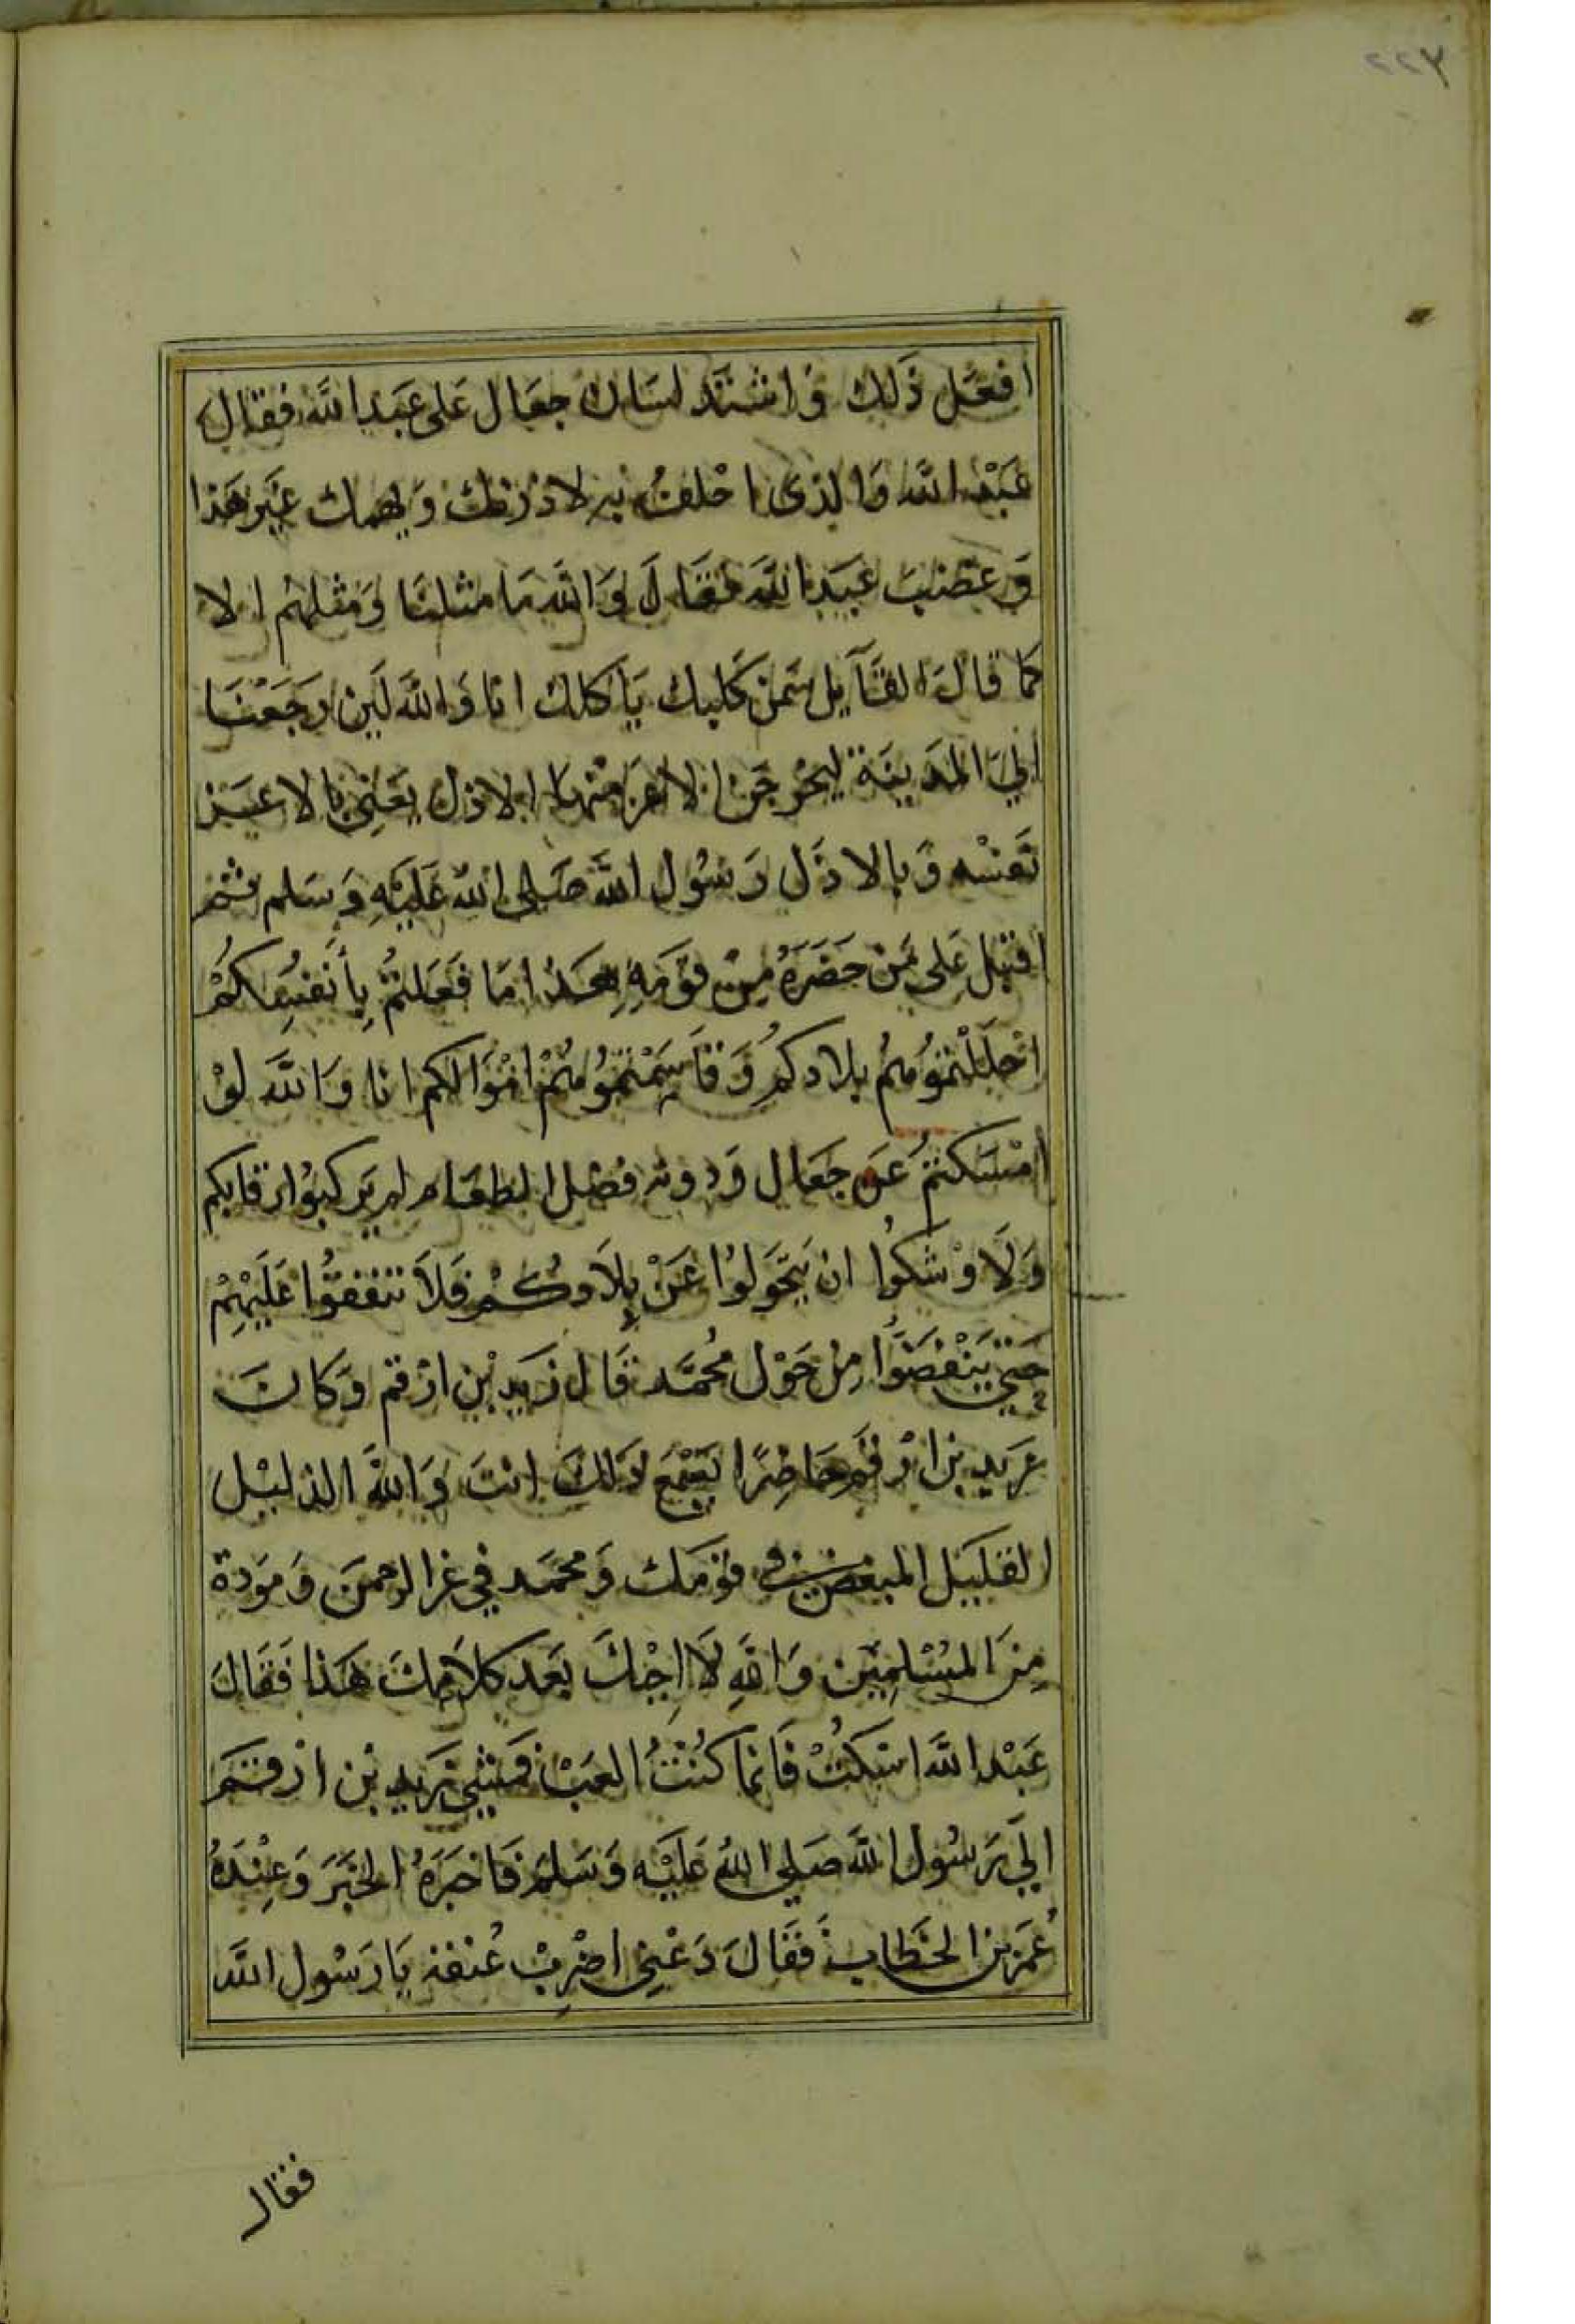 ٢٢٧
افعل ذلك وَاشتَد لسَان جعَال عَلى عَبَد الله فقال
عَبْد الله وَالذى احْلفُ به لاذرنك وَيهمك غيَر هَذا
وَغضبَ عبَد الله فقَالَ وَالله مَا مثلنا وَمثلهم الا
كما قالَ القَآيل سَمن كلبك يَاكلك انا وَالله لَين رَجَعْنَا
اليَ المدَينَة ليخرجَن الاعز منهَا الاذل يَعني بالاعَز
نَفسْه وَبالاذَل رَسُول الله صَلى الله عَليَهِ وَسَلم ثم
اقبَل عَلى مَن حَضَرَهُ مِنْ قوَمَهِ هَذا مَا فَعَلتُمْ بِأنَفُسِكمُ
احْلَلْتمُوُهُم بلادكمُ وَقاَسَمْتمُوُهُمْ امْوَالكم انا وَالله لوْ
امْسَكتمُ عَن جعَال وَدونه فضْل الطعَام لم يَركبوُا رقابكم
وَلَاوْشكوُا ان يَتحَولوُا عَنْ بِلاَدكُمْ فَلاَ تنفقوُا عَلَيْهِمْ
حَتي يَنْفضَوُّا مِنْ حَوْل مُحمَّد قَال زَيَد بْن ارْقم وَكانَ
زيد بن ارْقَم حَاضِرًا يَسْمَع ذلَكَ انتَ وَاللهَ الذليْل
القليَل المبغض في قوْمك وَمحمَد في عز الرحمنَ وَمَوَدة
مِنَ المسُلِميَن وَاللهِ لَا احِبْكَ بعَد كلاَمِكَ هَذا فَقالَ
عَبْد الله اسْكتْ فَانما كنُتُ العَبْ فمَشي زيد بْن ارقَم
اليَ رَسُول الله صَلي اللهُ عَليَْه وَسَلم فَاخبَرَهُ الخبَرَ وَعِنْدَهُ
عُمَر بن الخطاب فَقَالَ دَعْني اضْرِبْ عُنقه يَا رَسُول الله
فقال